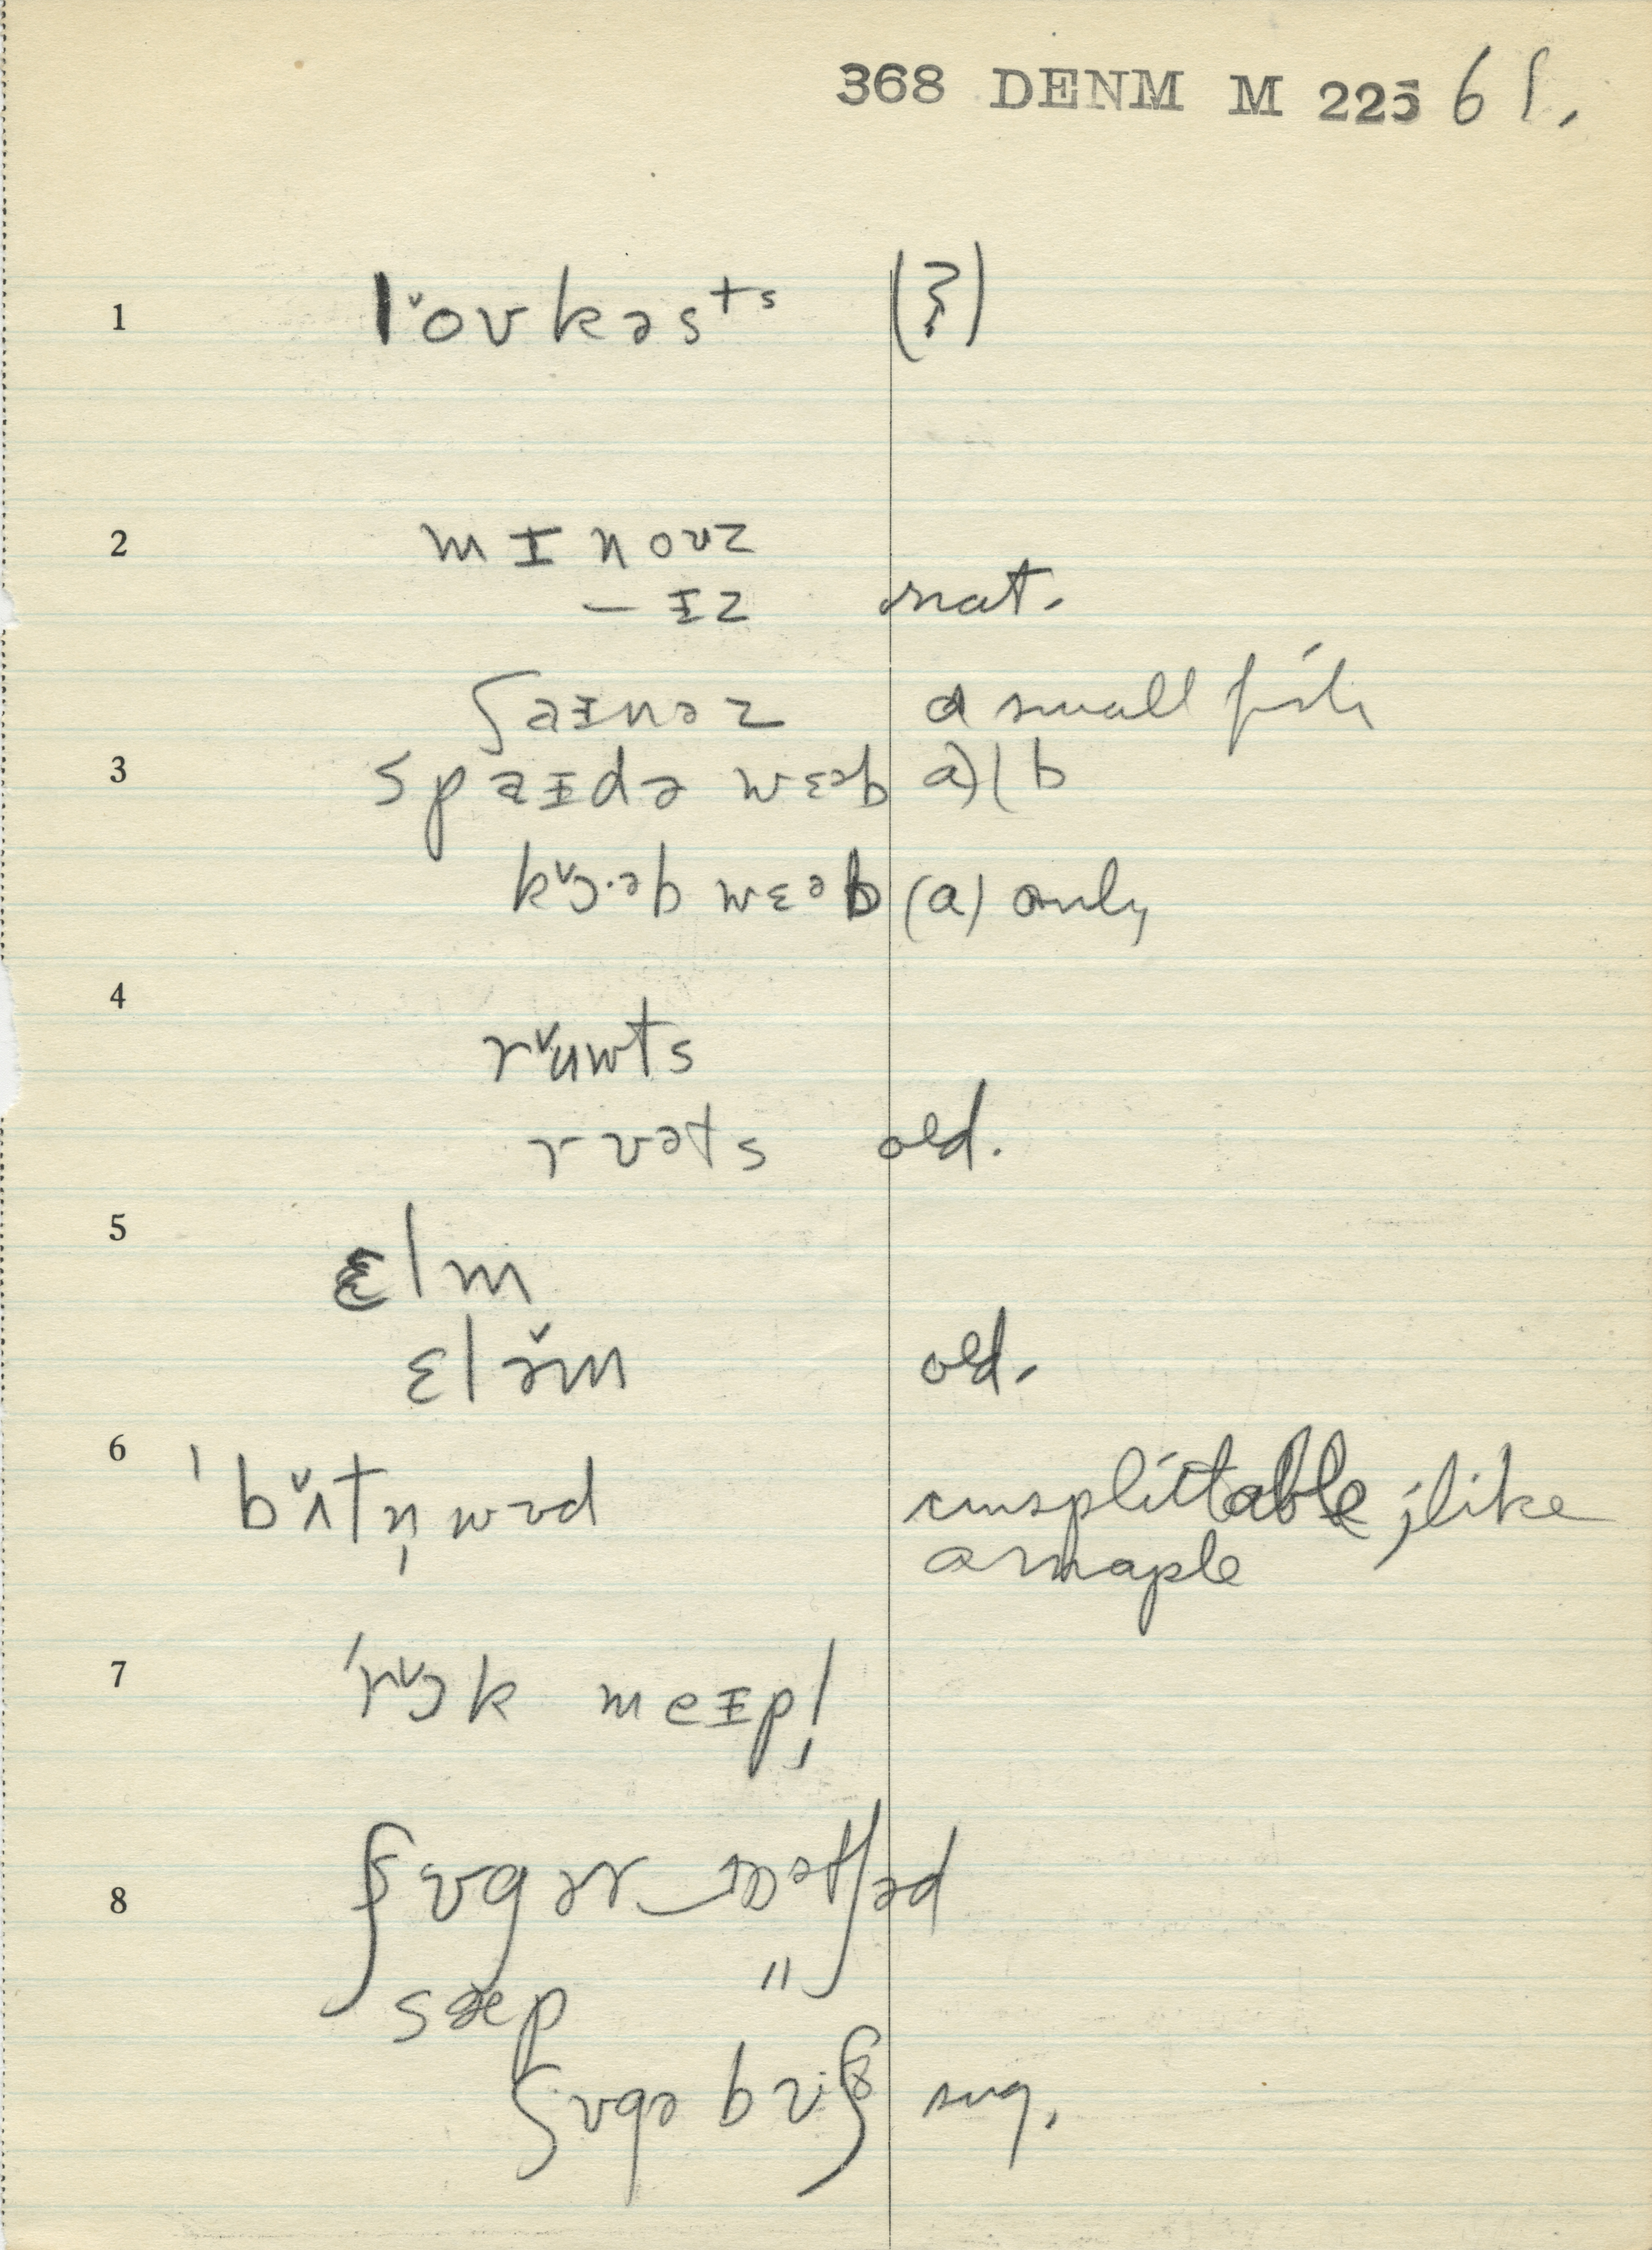 368 DENM M 225 61.
1 l̆oʊkəsᵗˢ (?)
2 mɪnoʊz
– ɪz nat.
ʃaɪnəz a small fish
3 spaɪdə wɛəb a)(b
kɔ̆·əb wɛəb (a) only
4 rŭuwts
rʊəts old.
5 ɛlm
ɛlə̆m old.
6 ˈbʌ̆tn̩wʊd unsplittable; like
a maple
7 ˈrɔ̆k meɪpl̩
8 ʃʊgər ɔətʃəd
sæp "
ʃʊgə bʊ·ʃ sug.